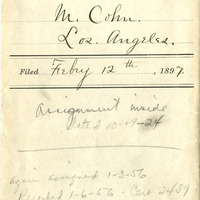 M. Cohn.
Los Angeles.
Filed Feby 12 th, 1897.
Assignment inside
Dated 10-19-24
again assigned 1-3-56
Recorded 1-6-56 - Cert 2459